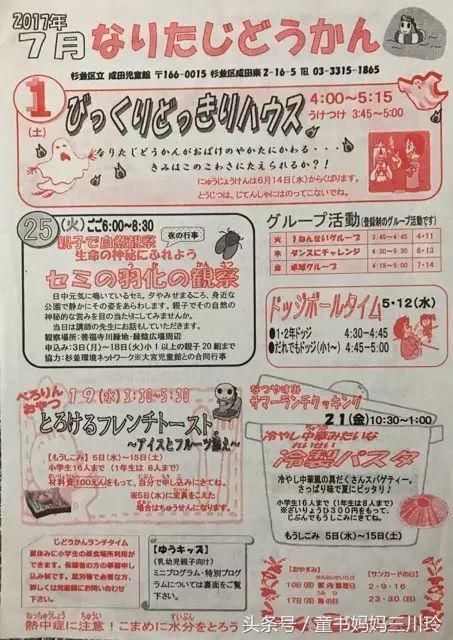 2017年
7月 なりたじどうかん
杉並区立 成田児童館 〒166-0015 杉並区成田東2-16-5 TEL 03-3315-1865
1
(土)
びっくりどっきりハウス
4:00～5:15
うけつけ 3:45～5:00
なりたじどうかんがおばけのやかたにかわる・・・
きみはこのこわさにたえられるか?!
にゅうじょうけんは6月14日(水)からくばります。
とうじつは、じてんしゃにはのってこないでね。
25
(火) ごご6:00～8:30
夜の行事
親子で自然観察
生命の神秘にふれよう
セミの羽化の観察
日中元気に鳴いているセミ。夕やみせまるころ、身近な
公園で静かにその姿をあらわします。親子でその自然の
神秘的な営みを目の当たりにしてみませんか。
当日は講師の先生にお話もしていただきます。
観察場所:善福寺川緑地・緑陰広場周辺
申込み:3日(月)～18日(火)小1以上の親子20組まで
協力:杉並環境ネットワーク※大宮児童館との合同行事
グループ活動(登録制のグループ活動です)
火 1ねんせいグループ 3:45～4:45 4・11
木 ダンスにチャレンジ 6・13
金 卓球グループ 4:15～5:15 7・14
ドッジボールタイム
5・12(水)
●1・2年ドッジ 4:30～4:45
●だれでもドッジ(小1～) 4:45～5:00
ぺろりん
おやつ
19(水) 3:30～5:30
とろけるフレンチトースト
～アイスとフルーツ添え～
【もうしこみ】5日(水)～15日(土)
小学生16人まで(1年生は8人まで)
材料費100えんをもって、自分で申し込みにきてね。
※5日(水)に定員をこえた
場合はちゅうせんになります。
なつやすみ
サマーランチクッキング
21(金) 10:30～1:00
冷やし中華みたいな
冷製パスタ
冷やし中華風の具だくさんスパゲティー。
さっぱり味で夏にピッタリ♪
小学生16人まで(1年生は8人まで)
※ざいりょうひ300円をもって、
じぶんでもうしこみにきてね。
もうしこみ 5日(水)～15日(土)
じどうかんランチタイム
夏休みに小学生の昼食場所利用が
できます。保護者の方の事前申し
込み制です。就労等で必要な方、
詳しくは児童館にお問い合わせ
ください。
【ゆうキッズ】
(乳幼児親子向け)
ミニプログラム・特別プログ
ラムについては裏面をご覧
下さい。
【おやすみ】
17日(月) 海の日
【サンカードの日】
2・9・16
23・30
ねっちゅうしょう ちゅうい すいぶん
熱中症に注意!こまめに水分をとろう
头条号/童书妈妈三川玲